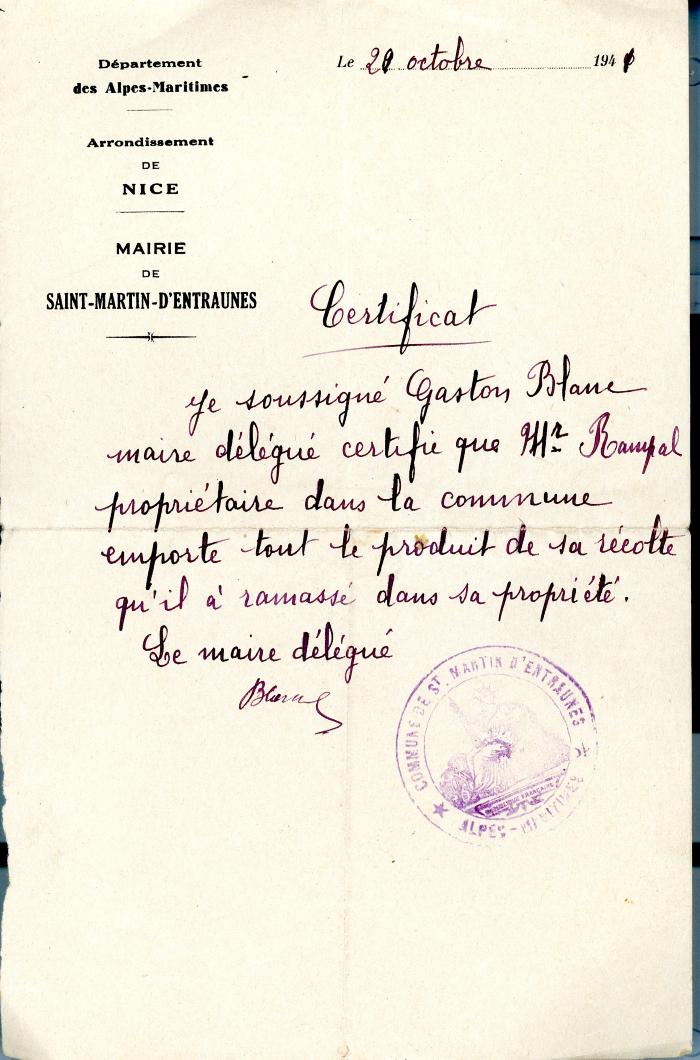 Département
des Alpes-Maritimes
Arrondissement
DE
NICE
MAIRIE
DE
SAINT-MARTIN-D'ENTRAUNES
Le octobre 194
Certificat
Je soussigné Gaston Blanc
maire délégué certifie que Mr Rampal
propriétaire dans la commune
emporte tout le produit de sa récolte
qu'il à ramassé dans sa propriété.
Le maire délégué
Blanc
COMMUNE DE ST. MARTIN D'ENTRAUNES
RÉPUBLIQUE FRANÇAISE
ALPES-MARITIMES